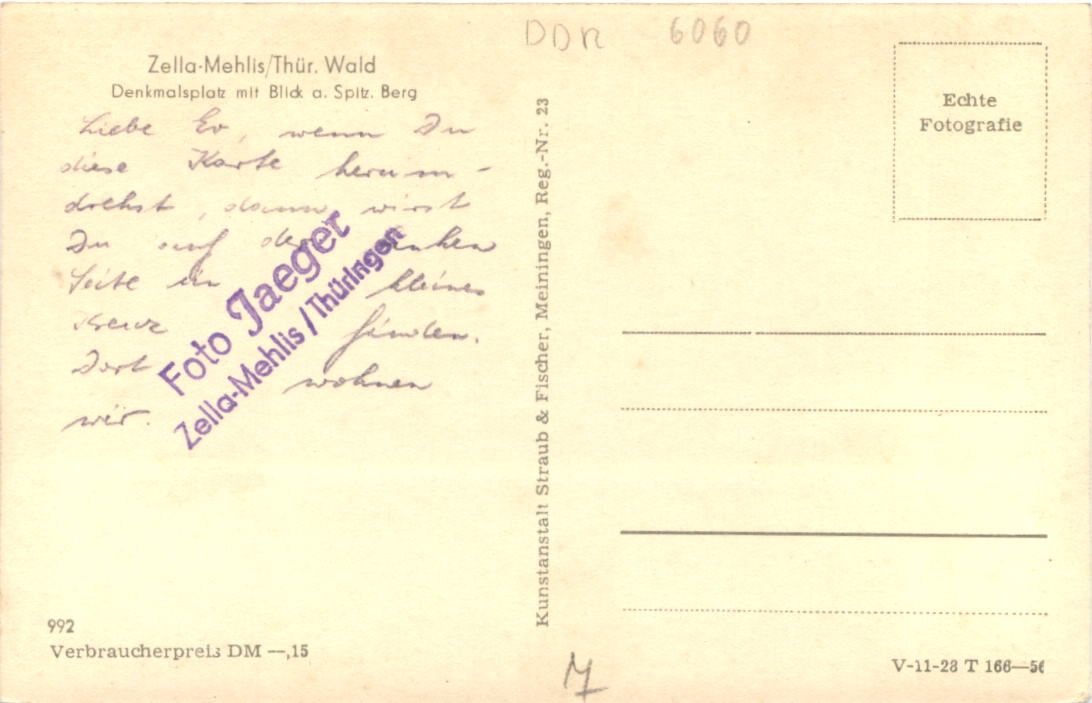 DDR 6060
Zella-Mehlis/Thür. Wald
Denkmalsplatz mit Blick a. Spitz. Berg
Liebe Ev, wenn Du
diese Karte herum-
drehst, dann wirst
Du auf der linken
Seite ein kleines
Kreuz finden.
Dort wohnen
wir.
Foto Jaeger
Zella-Mehlis/Thüringen
992
Verbraucherpreis DM —,15
Kunstanstalt Straub & Fischer, Meiningen, Reg.-Nr. 23
Echte
Fotografie
V-11-28 T 166—56